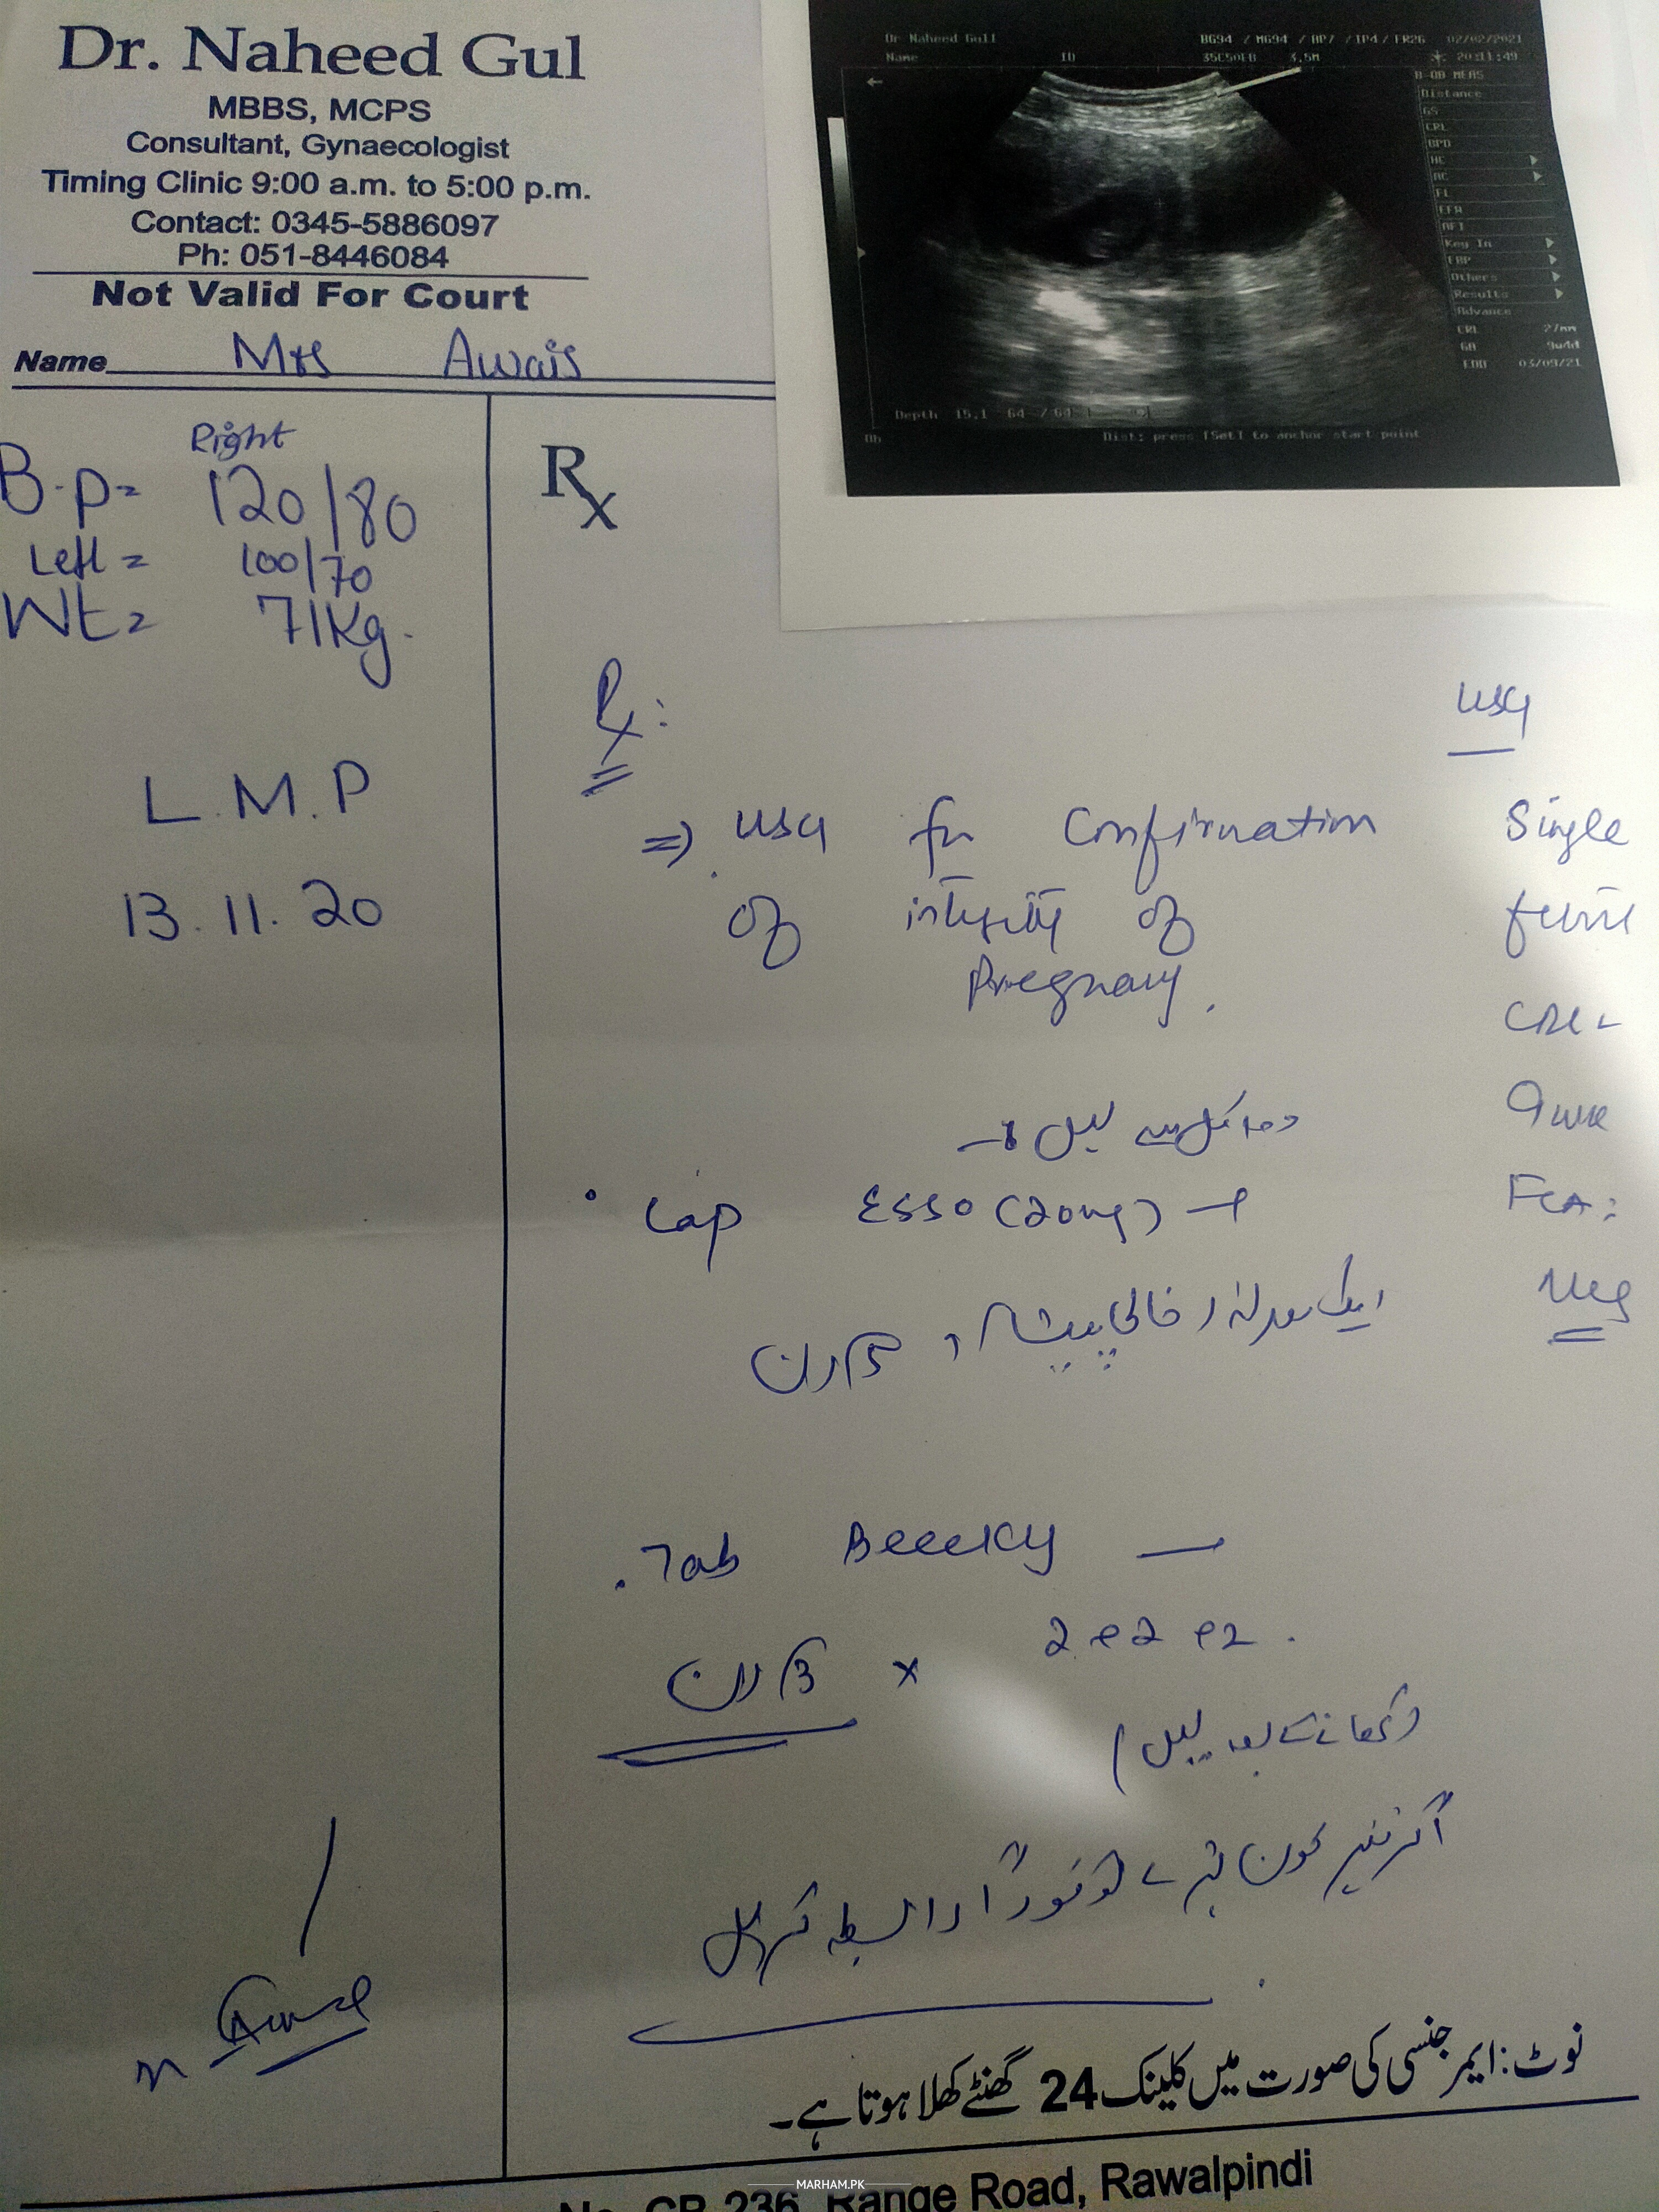 Dr. Naheed Gul
MBBS, MCPS
Consultant, Gynaecologist
Timing Clinic 9:00 a.m. to 5:00 p.m.
Contact: 0345-5886097
Ph: 051-8446084
Not Valid For Court
Name Mrs Awais
Dr Naheed Gull BG94 / MG94 / AP7 / IP4 / FR26 02/02/2021
Name ID 35C50EB 3.5M 20:11:49
B-OB MEAS
Distance
GS
CRL
BPD
HC
AC
FL
EFW
AFI
Key In
FBP
Others
Results
Advance
CRL 27mm
GA 9w4d
EDD 03/09/21
Depth 15.1 64 / 64
Ob Dist: press [Set] to anchor start point
Right
B.P= 120/80
Left = 100/70
Wt= 71Kg.
L.M.P
13.11.20
Rx
Rx:
=> USG for Confirmation
of of
Pregnancy.
USG
Single
CRL
9wk
FCA:
Neg
دوا کل سے لیں
Cap ESSO (20mg)
ایک روزانہ خالی پیٹ
3 دن
Tab
2 e 2 e 2.
3 دن x
(کھانے کے بعد لیں)
اگر خون پڑے تو فوراً رابطہ کریں
نوٹ: ایمرجنسی کی صورت میں کلینک 24 گھنٹے کھلا ہوتا ہے۔
No. CB 236, Range Road, Rawalpindi
MARHAM.PK